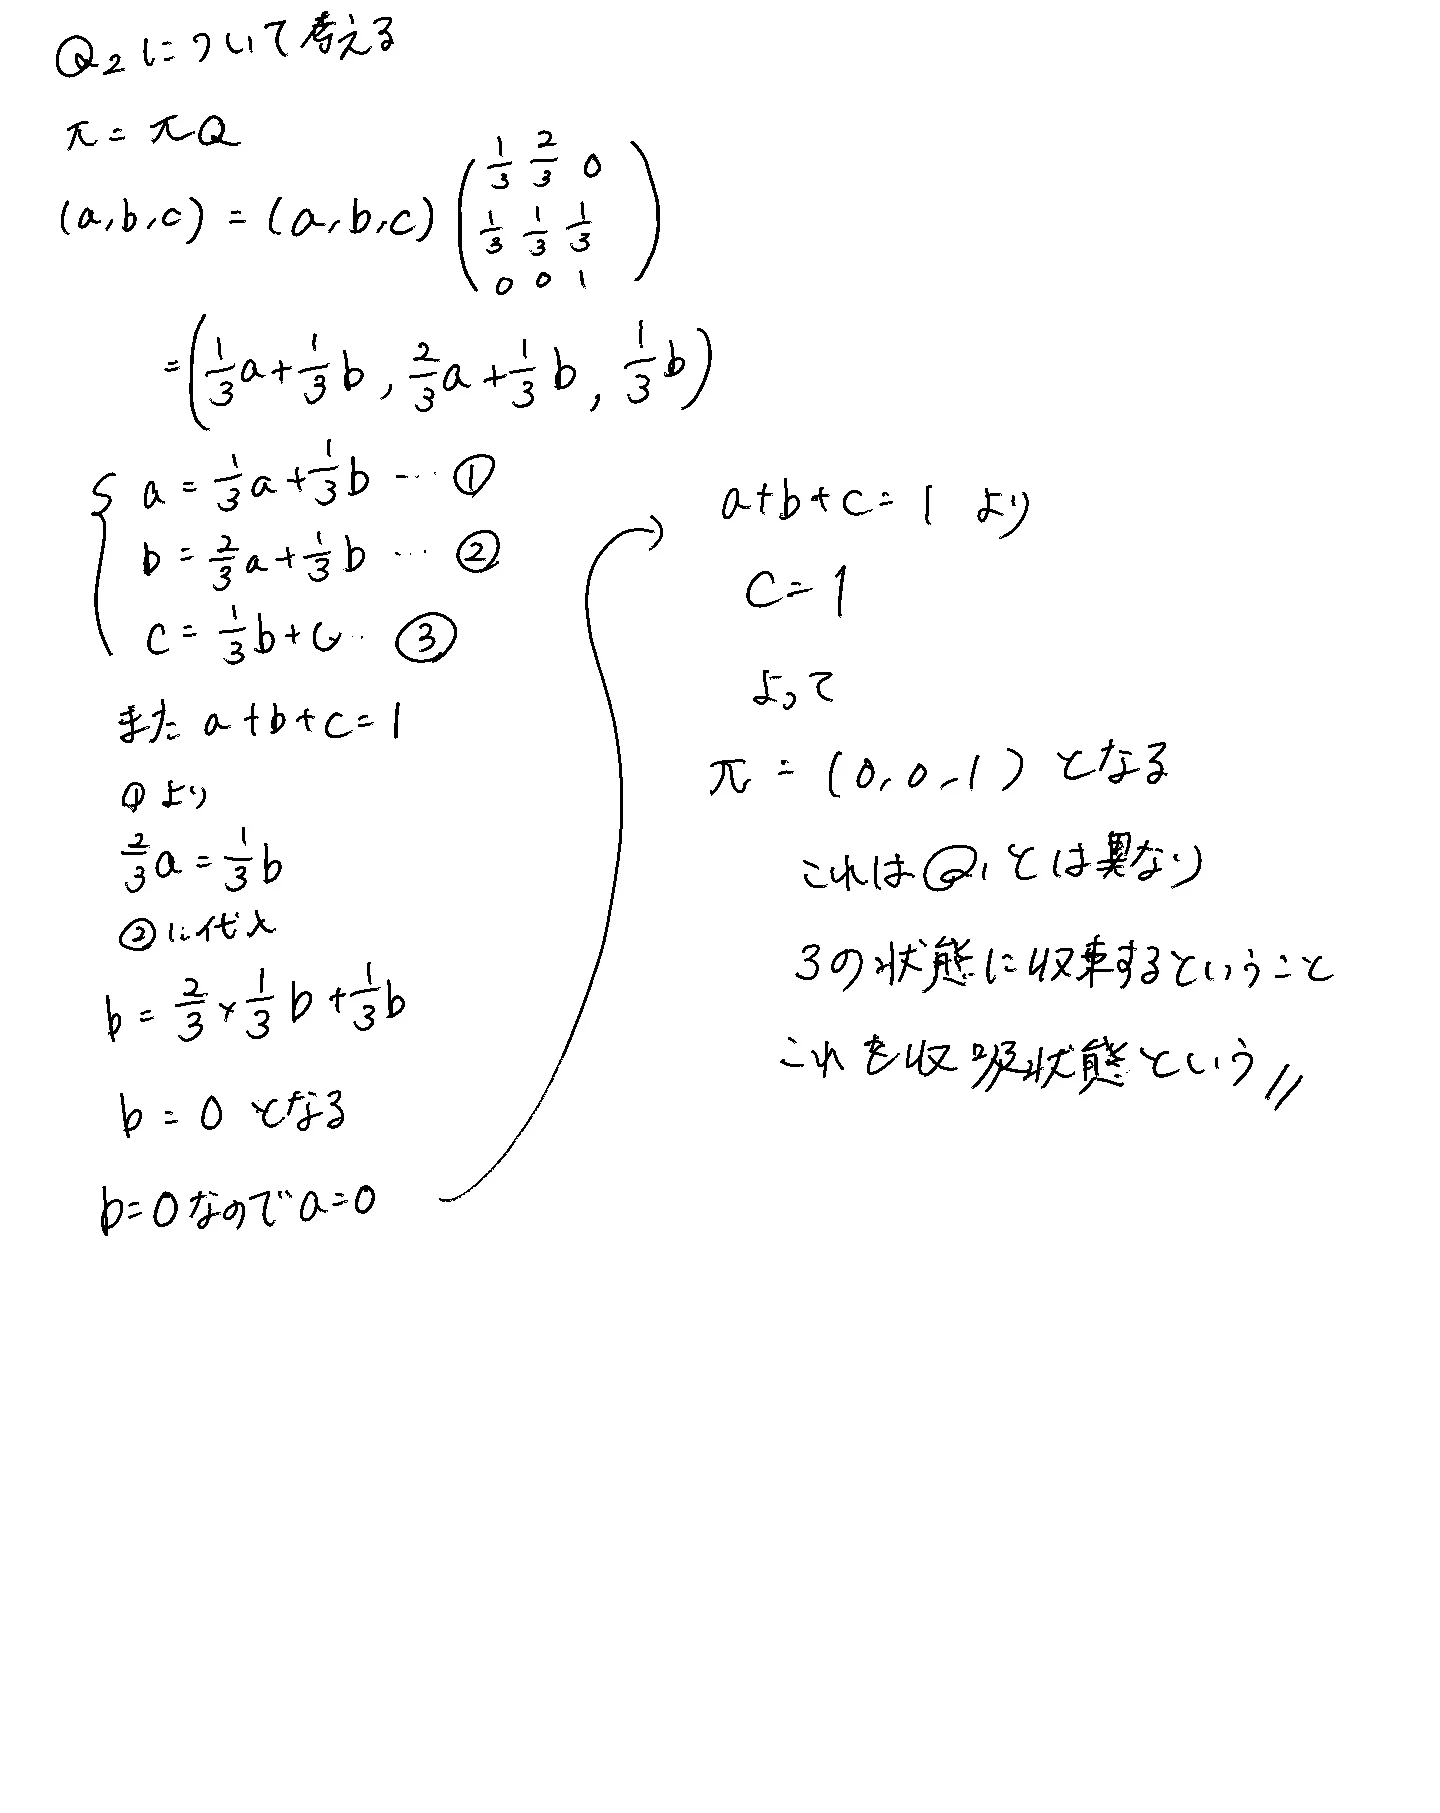 Q₂について考える
π = πQ
(a,b,c) = (a,b,c) (1/3 2/3 0
1/3 1/3 1/3
0 0 1)
= (1/3 a + 1/3 b , 2/3 a + 1/3 b , 1/3 b)
{ a = 1/3 a + 1/3 b … ①
b = 2/3 a + 1/3 b … ②
c = 1/3 b + c … ③
また a+b+c=1
①より
2/3 a = 1/3 b
②に代入
b = 2/3 × 1/3 b + 1/3 b
b = 0 となる
b=0なのでa=0
→ a+b+c=1 より
c=1
よって
π = (0,0,1) となる
これはQ₁とは異なり
3の状態に収束するということ
これを収吸状態という〃